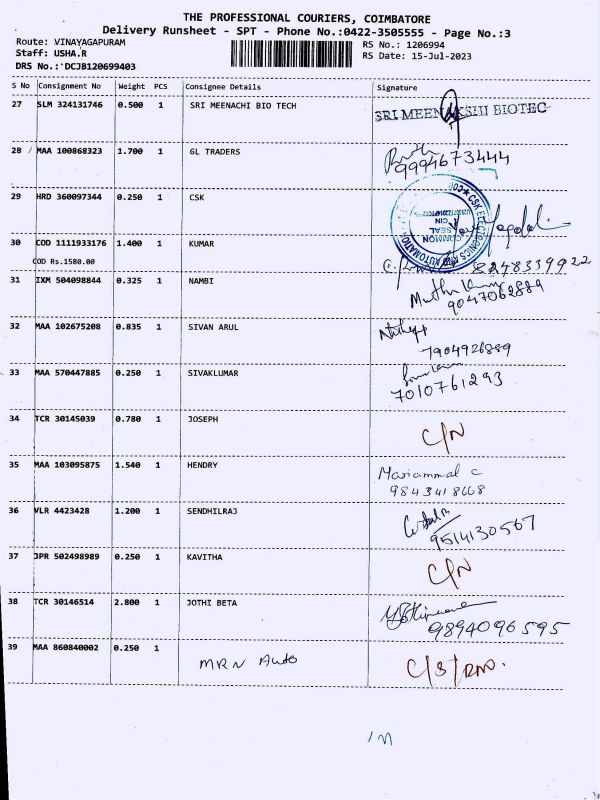 THE PROFESSIONAL COURIERS, COIMBATORE
Delivery Runsheet - SPT - Phone No.:0422-3505555 - Page No.:3
Route: VINAYAGAPURAM RS No.: 1206994
Staff: USHA.R RS Date: 15-Jul-2023
DRS No.: DCJB120699403
S No Consignment No Weight PCS Consignee Details Signature
27 SLM 324131746 0.500 1 SRI MEENACHI BIO TECH SRI MEENAKSHI BIOTEC
28 MAA 100868323 1.700 1 GL TRADERS
9994673444
29 HRD 360097344 0.250 1 CSK
CSK ELECTRONICS AND AUTOMATION
COMMON SEAL
CIN
30 COD 1111933176 1.400 1 KUMAR
COD Rs.1580.00 8248339922
31 IXM 504098844 0.325 1 NAMBI
9047062889
32 MAA 102675208 0.835 1 SIVAN ARUL
7904926889
33 MAA 570447885 0.250 1 SIVAKLUMAR
7010761293
34 TCR 30145039 0.780 1 JOSEPH C/N
35 MAA 103095875 1.540 1 HENDRY Mariammal c
9843418668
36 VLR 4423428 1.200 1 SENDHILRAJ
9514130567
37 JPR 502498989 0.250 1 KAVITHA C/N
38 TCR 30146514 2.800 1 JOTHI BETA
9894096595
39 MAA 860840002 0.250 1 MRN Auto C/S/RNO.